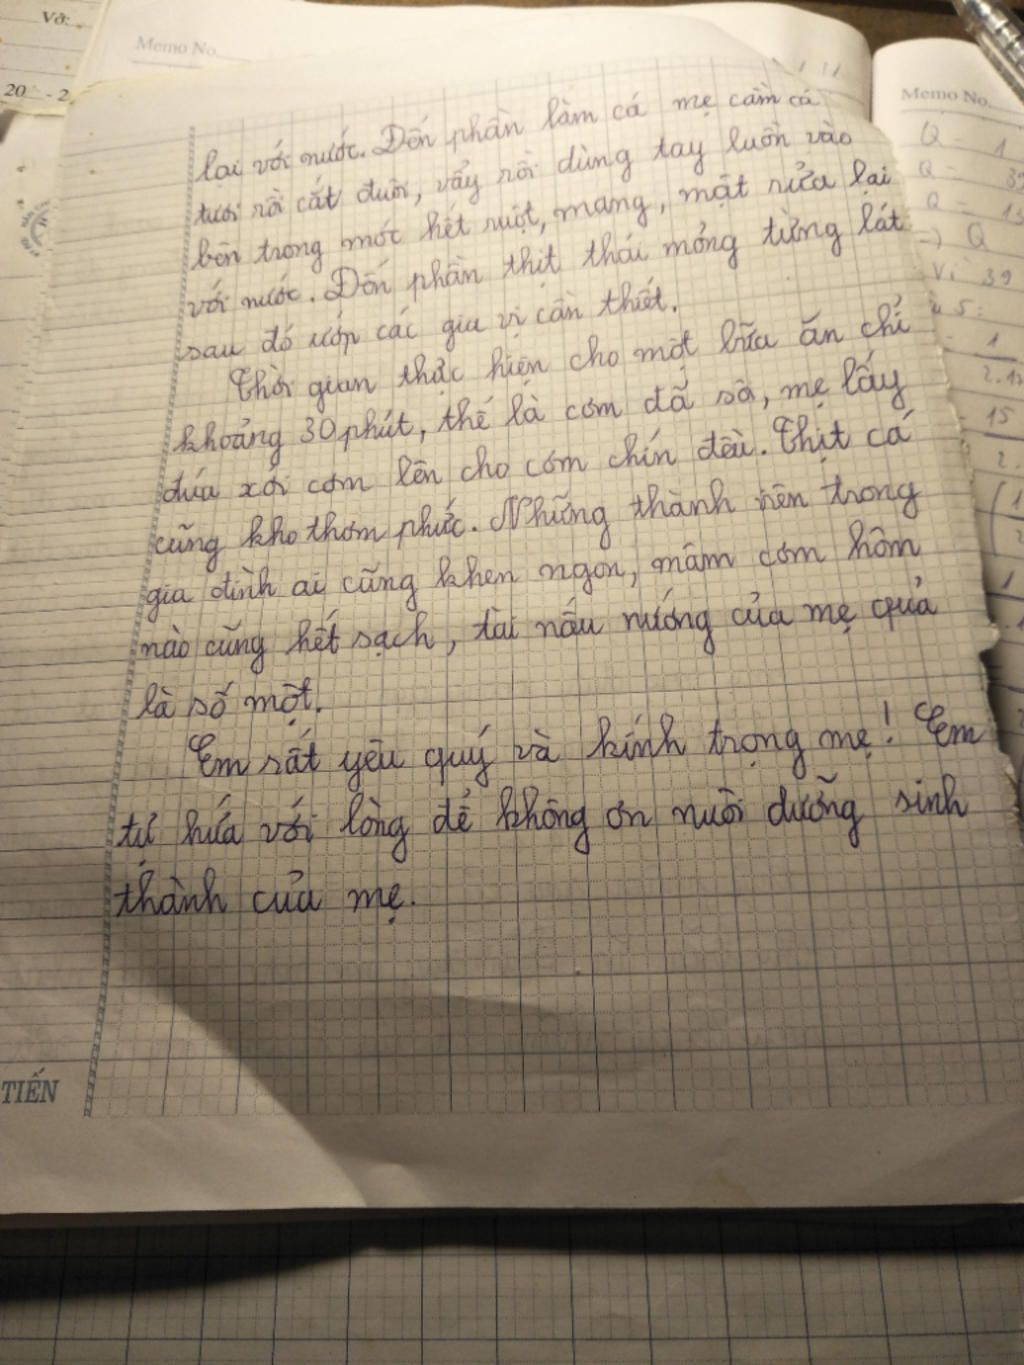 Vở:
20 - 2
Memo No.
lại với nước. Đến phần làm cá mẹ cầm cá
tươi rồi cắt đuôi, vẩy rồi dùng tay luồn vào
bên trong móc hết ruột, mang, mật rửa lại
với nước. Đến phần thịt thái mỏng từng lát
sau đó ướp các gia vị cần thiết.
Thời gian thực hiện cho một bữa ăn chỉ
khoảng 30 phút, thế là cơm đã sôi, mẹ lấy
đũa xới cơm lên cho cơm chín đều. Thịt cá
cũng kho thơm phức. Những thành viên trong
gia đình ai cũng khen ngon, mâm cơm hôm
nào cũng hết sạch, tài nấu nướng của mẹ quả
là số một.
Em rất yêu quý và kính trọng mẹ! Em
tự hứa với lòng để không ơn nuôi dưỡng sinh
thành của mẹ.
TIẾN
Memo No.
Q = 1
Q = 39
Q = 13
=> Q
Vì 39
5:
1
15
2.
1